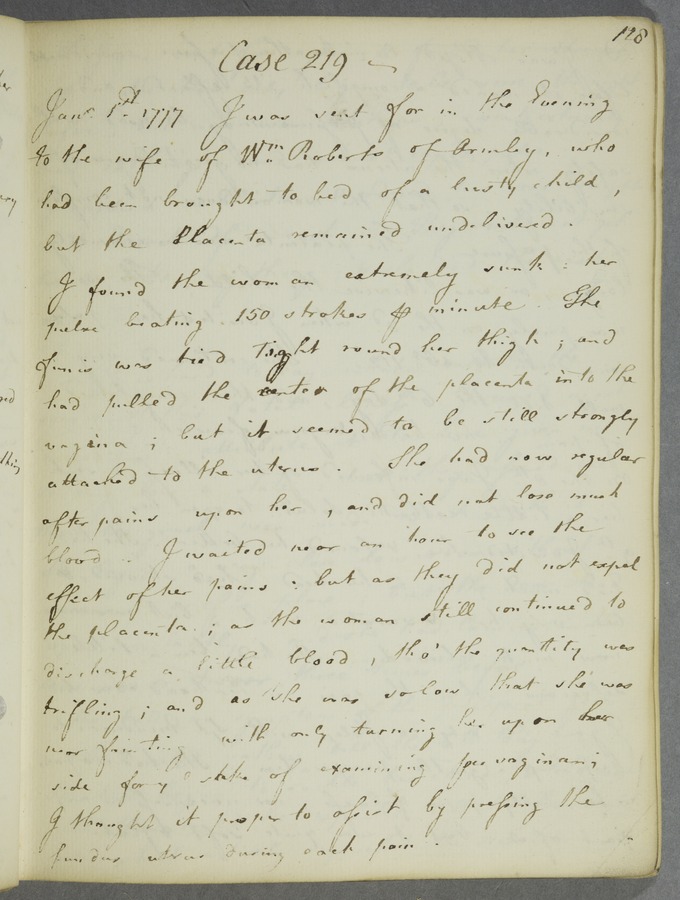 118
Case 219
Jany. 1st. 1777 I was sent for in the Evening
to the wife of Wm. Roberts of Armley, who
had been brought to bed of a lusty child,
but the Placenta remained undelivered.
I found the woman extremely sunk: her
pulse beating 150 strokes ⅌ minute. The
funis was tied tight round her thigh; and
had pulled the center of the placenta into the
vagina; but it seemed to be still strongly
attached to the uterus. She had now regular
after pains upon her, and did not lose much
blood. I waited near an hour to see the
effect of her pains: but as they did not expel
the placenta; as the woman still continued to
discharge a little blood, tho' the quantity was
trifling; and as she was so low that she was
near fainting with only turning her upon her
side for ye sake of examining per vaginam;
I thought it proper to assist by pressing the
fundus uterus during each pain.